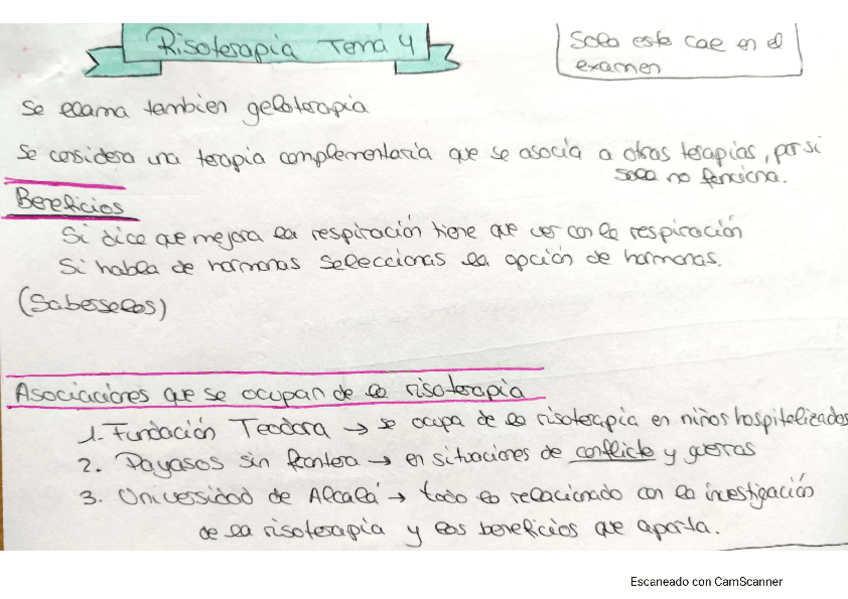 Risoterapia Tema 4
Solo este cae en el
examen
Se llama tambien geloterapia
Se considera una terapia complementaria que se asocia a otras terapias, por si
sola no funciona.
Beneficios
Si dice que mejora la respiración tiene que ver con la respiración
Si habla de hormonas seleccionas la opción de hormonas.
(Sabesselos)
Asociaciones que se ocupan de la risoterapia
1. Fundación Teodora → se ocupa de la risoterapia en niños hospitalizados
2. Payasos sin frontera → en situaciones de conflicto y guerras
3. Universidad de Alcalá → todo lo relacionado con la investigación
de la risoterapia y los beneficios que aporta.
Escaneado con CamScanner